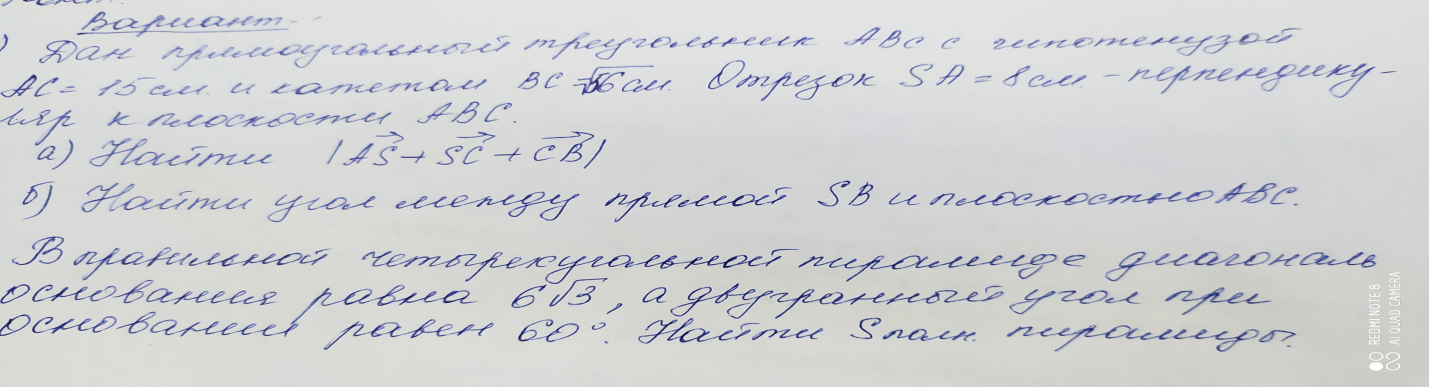 Вариант.
Дан прямоугольный треугольник ABC с гипотенузой
AC = 15 см. и катетом BC = см. Отрезок SA = 8 см. - перпендику-
ляр к плоскости ABC.
а) Найти |AS + SC + CB|
б) Найти угол между прямой SB и плоскостью ABC.
В правильной четырехугольной пирамиде диагональ
основания равна 6√3, а двугранный угол при
основании равен 60°. Найти Sполн. пирамиды.
REDMI NOTE 8
AI QUAD CAMERA